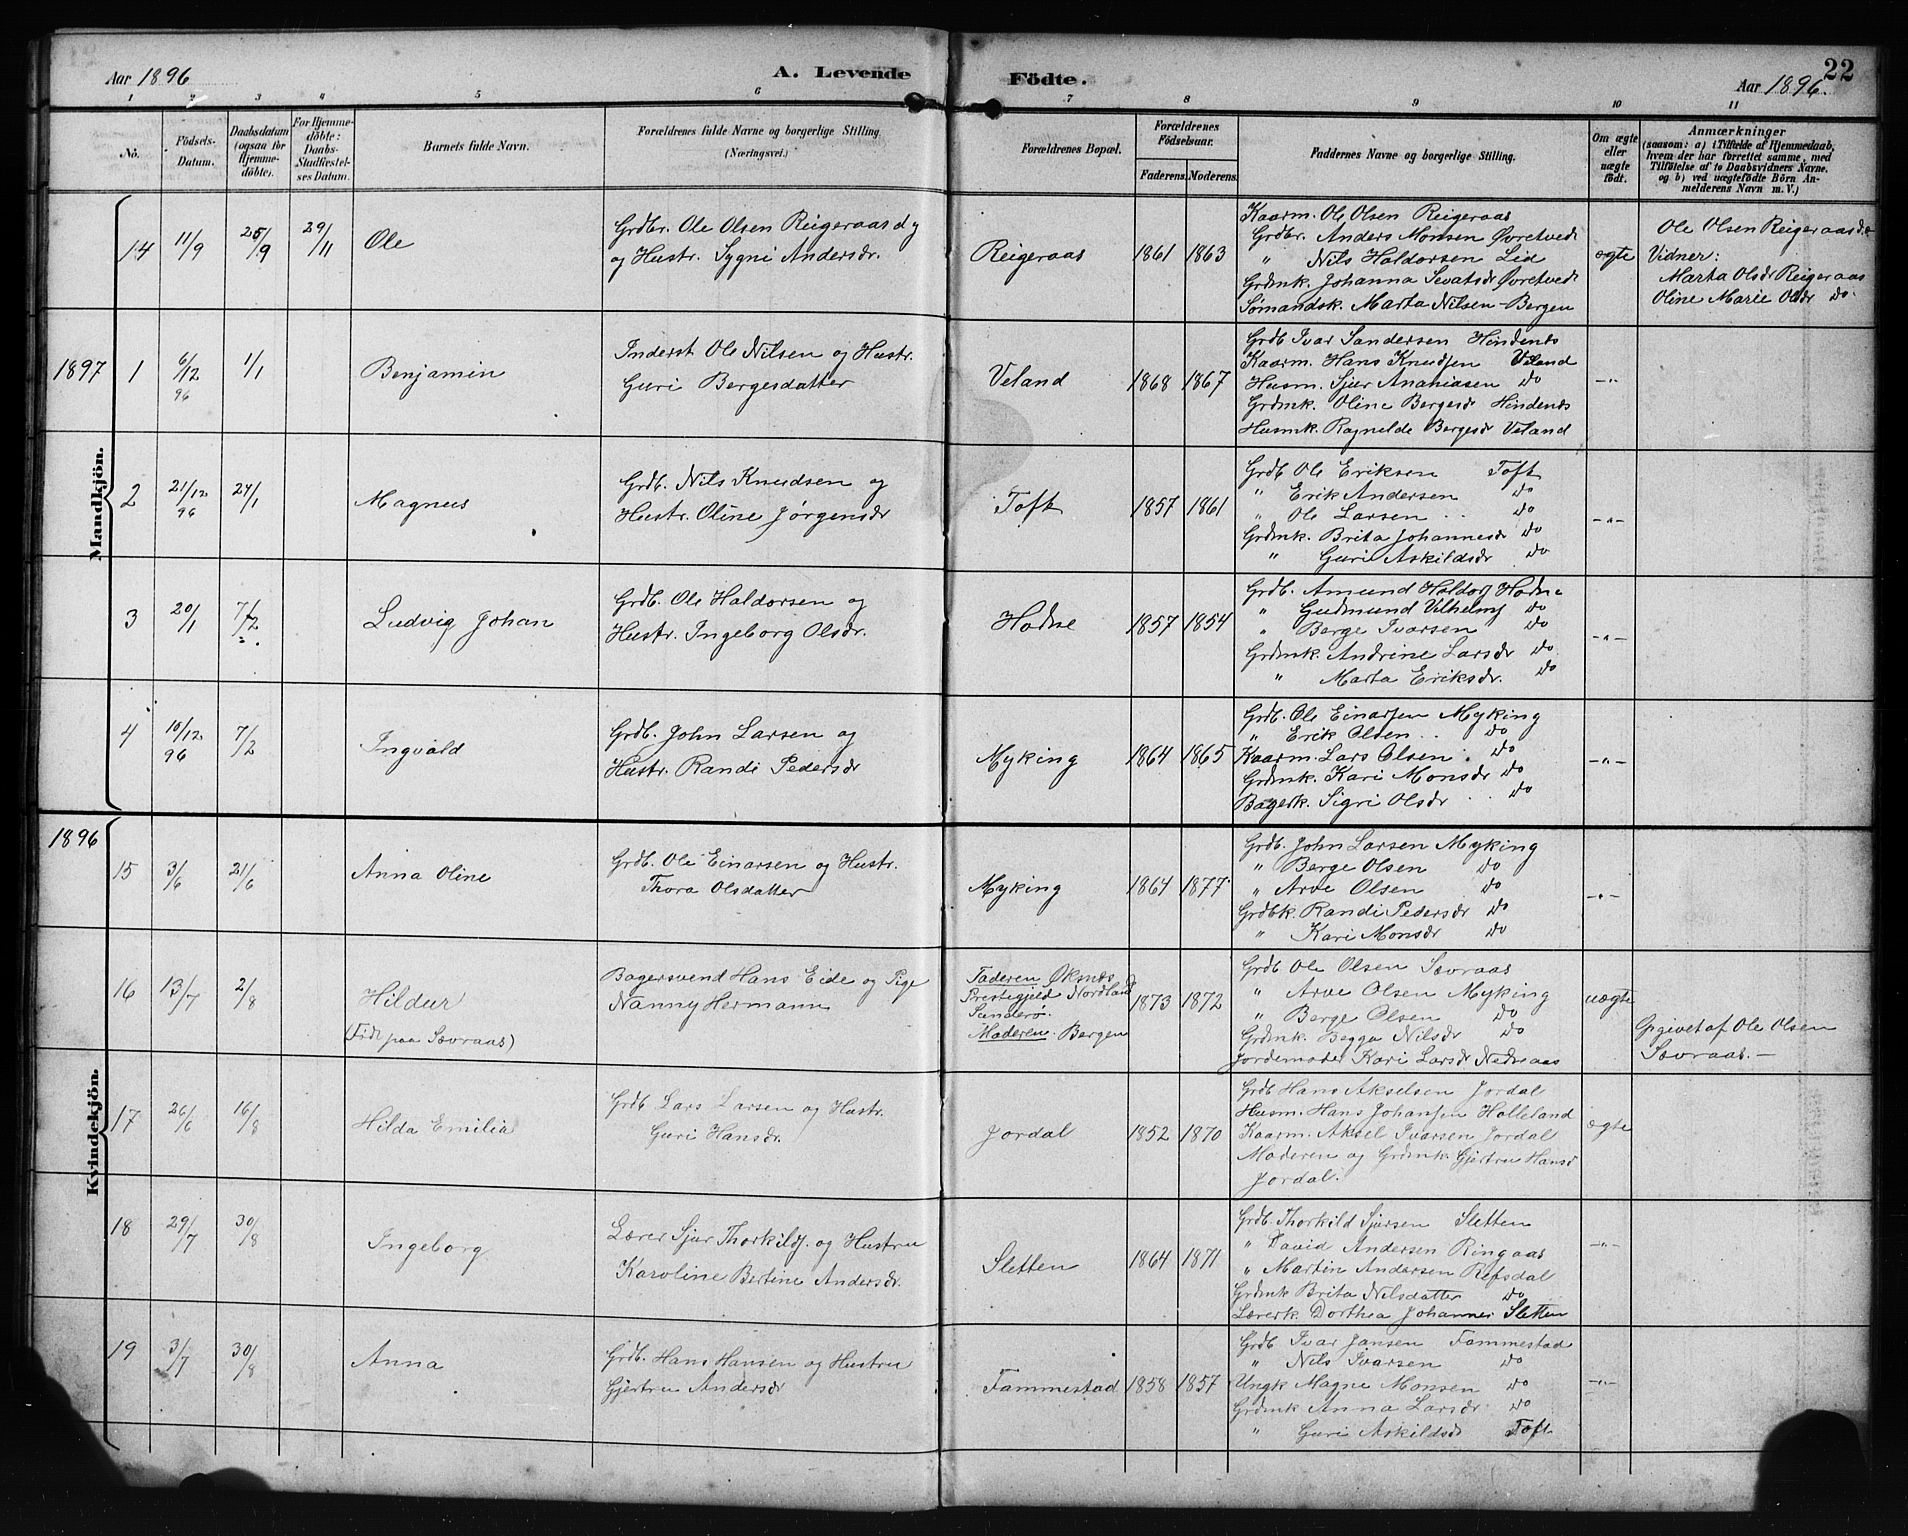 Aar 1896
A. Levende
Födte.
22
Aar 1896.
1 2 3 4 5 6 7 8 9 10 11
No.
Födsels-
Datum.
Daabsdatum
(ogsaa for
Hjemme-
döbte).
For Hjemme-
döbte:
Daabs-
Stadfæstel-
ses Datum.
Barnets fulde Navn.
Forældrenes fulde Navne og borgerlige Stilling.
(Næringsvei.)
Forældrenes Bopæl.
Forældrenes
Födselsaar.
Faderens. Moderens.
Faddernes Navne og borgerlige Stilling.
Om ægte
eller
uægte
födt.
Anmærkninger
(saasom: a) i Tilfælde af Hjemmedaab,
hvem der har forrettet samme, med
Tilföielse af to Daabsvidners Navne.
og b) ved uægtefödte Börn An-
melderens Navn m. V.)
Mandkjön.
14 11/9 25/9 29/11 Ole
Grdbr. Ole Olsen Reigeraas
og Hustr. Sygni Andersdr.
Reigeraas 1861 1863
Kaarm. Ole Olsen Reigeraas
Grdbr. Anders Monsen Øvretvedt
" Nils Haldorsen Lid
Grdmk. Johanna Øvretvedt
Sømandsk. Marta Nilsen - Bergen
ægte
Ole Olsen Reigeraas
Vidner:
Marta Olsdr Reigeraas
Oline Marie Olsdr do.
1897 1 6/12 96 1/1 Benjamin
Inderst Ole Nilsen og Hustr.
Guri Bergesdatter
Veland 1868 1867
Grdb Ivar Sandersen Hindenes
Kaarm. Hans Knudsen Veland
Husm. Sjur Ananiasen do
Grdmk. Oline Bergesdr Hindenes
Husmk. Ragnilde Bergesdr Veland
-"-
2 21/12 96 24/1 Magnus
Grdb. Nils Knudsen og
Hustr. Oline Jørgensdr
Toft 1857 1861
Grdb Ole Eriksen Toft
" Erik Andersen do
" Ole Larsen do
Grdmk. Brita Johannesdr do
" Guri Askildsdr do
-"-
3 20/1 7/2 Ludvig Johan
Grdb. Ole Haldorsen og
Hustr. Ingeborg Olsdr.
Hodne 1857 1854
Grdb. Amund Haldorf Hodne
" Gudmund Vilhelmf do
" Berge Ivarsen do
Grdmk. Andrine Larsdr do
" Marta Eriksdr. do
-"-
4 10/12 96 7/2 Ingvald
Grdb. John Larsen og
Hustr. Randi Pedersdr
Myking 1864 1865
Grdb. Ole Einarsen Myking
" Erik Olsen do
Kaarm. Lars Olsen do
Grdmk. Kari Monsdr do
Bagerk. Sigri Olsdr do
-"-
1896
Kvindekjön.
15 3/6 21/6 Anna Oline
Grdb. Ole Einarsen og Hustr.
Thora Olsdatter
Myking 1864 1877
Grdb. John Larsen Myking
" Berge Olsen do
" Arve Olsen do
Grdbk. Randi Pedersdr do
" Kari Monsdr do
-"-
16 13/7 2/8 Hildur
(Født paa Sævraas)
Bagersvend Hans Eide og Pige
Nanny Hermann
Faderen Øksnes
Prestegjeld Nordland
Moderen. Bergen
1873 1872
Grdb Ole Olsen Sævraas
" Arve Olsen Myking
" Berge Olsen do
Grdmk. Begga Nilsdr do
Jordemoder Kari Larsdr Nedreaas
uægte
Opgivet af Ole Olsen
Sævraas. -
17 26/6 16/8 Hilda Emilia
Grdb Lars Larsen og Hustr.
Guri Hansdr
Jordal 1852 1870
Grdb Hans Akselsen Jordal
Husm. Hans Johansen Holleland
Kaarm. Aksel Ivarsen Jordal
Moderen og Grdmk. Gjertru Hansd
Jordal.
ægte
18 29/7 30/8 Ingeborg
Lærer Sjur Thorkildf. og Hustru
Karoline Bertine Andersdr.
Sletten 1864 1871
Grdb. Thorkild Sjursen Sletten
" David Andersen Ringaas
" Martin Andersen Refsdal
Grdmk Brita Nilsdatter do
Lærerk Dorthea Johannes Sletten
-"-
19 3/7 30/8 Anna
Grdb. Hans Hansen og Hustru
Gjertru Andersdr
Fammestad 1858 1857
Grdb Ivar Jansen Fammestad
" Nils Ivarsen do
Ungk Magne Monsen do
Grdmk Anna Larsdr do
" Guri Askildsdr Toft
-"-